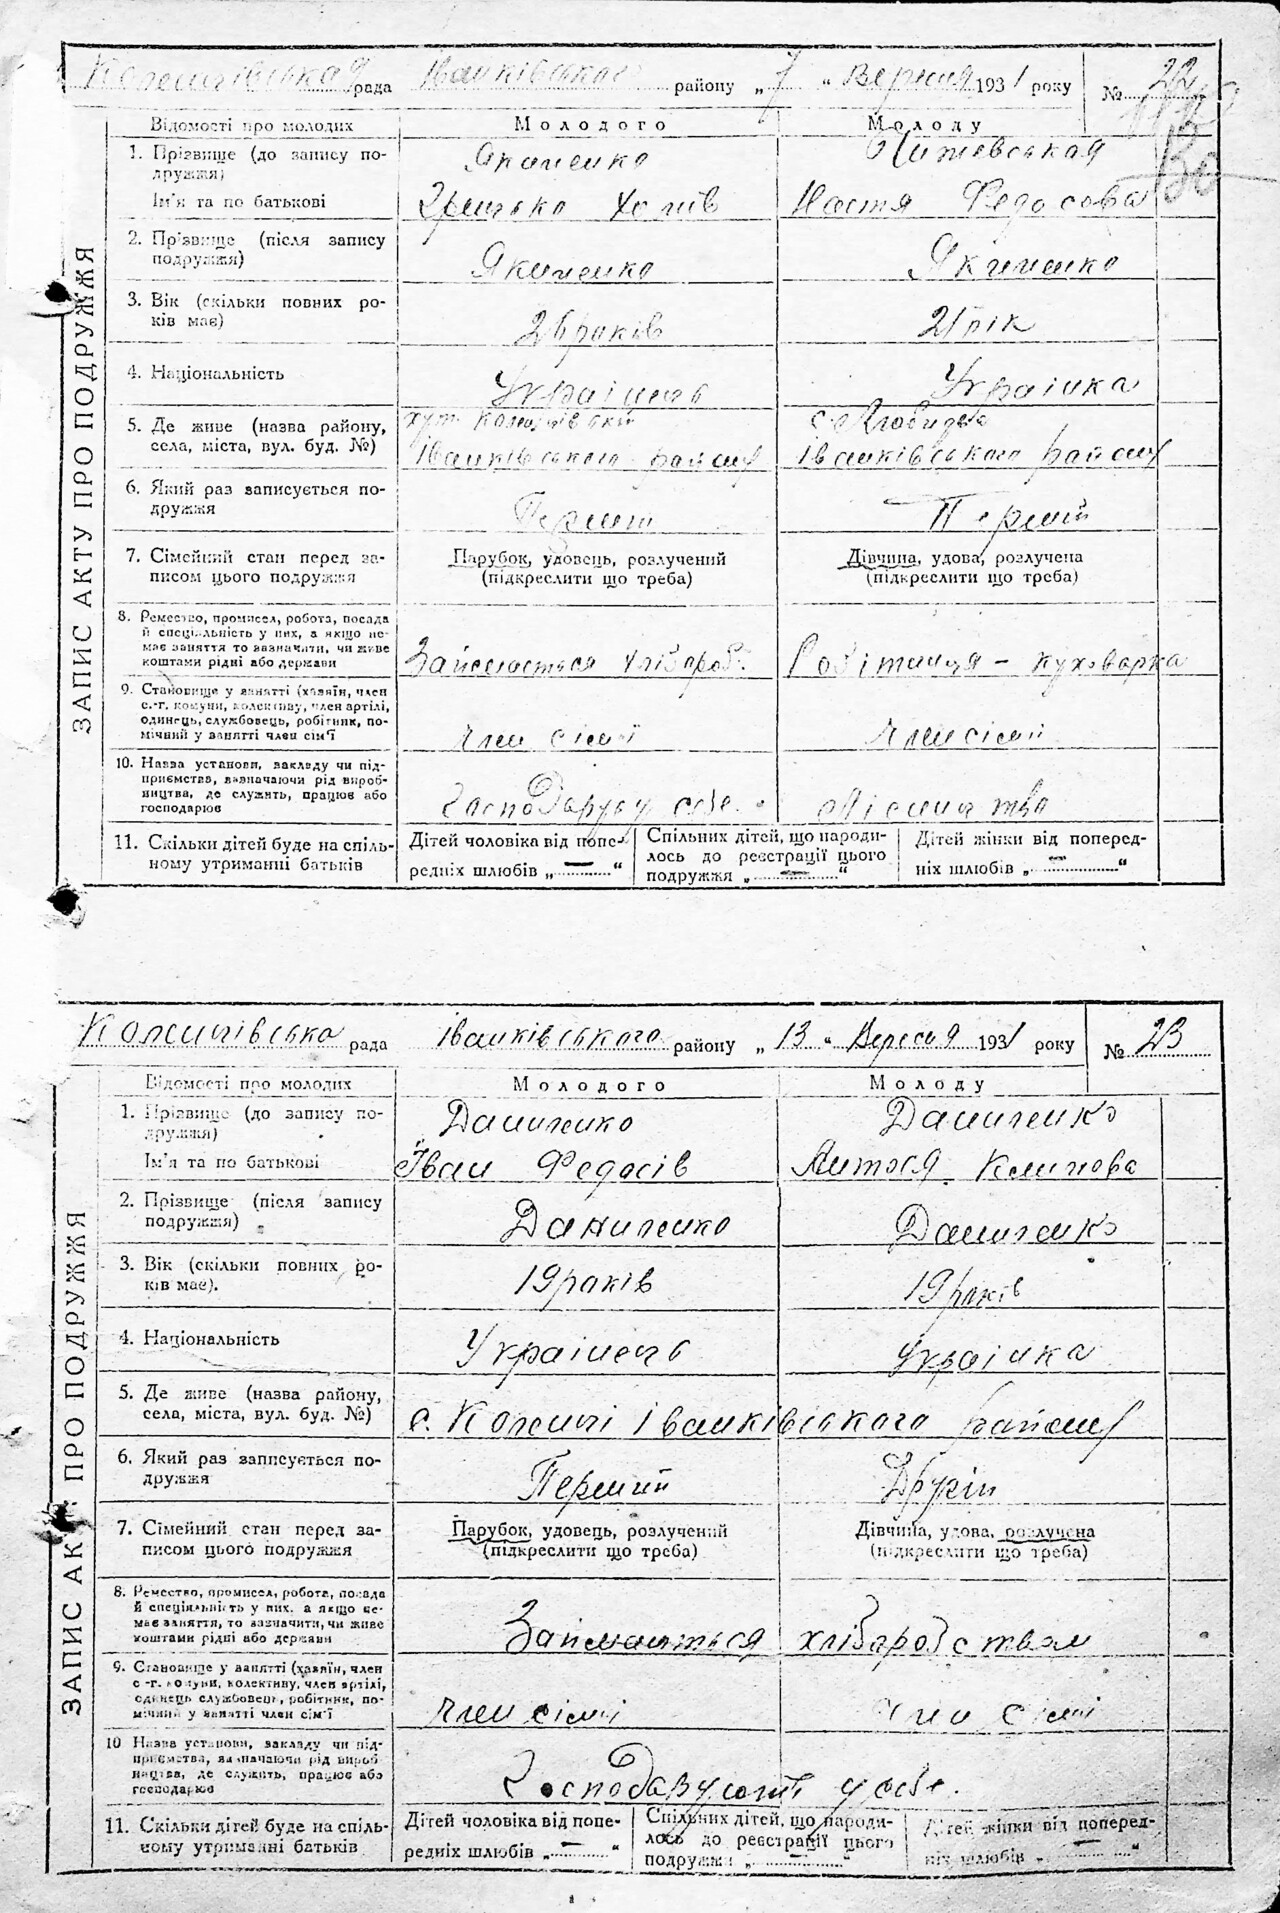 рада Іванківського району „ 7 " Вересня 1931 року № 22
ЗАПИС АКТУ ПРО ПОДРУЖЖЯ
Відомості про молодих Молодого Молоду
1. Прізвище (до запису по-
дружжя) Якименко
Ім'я та по батькові Грицько Настя Федосова
2. Прізвище (після запису
подружжя) Якименко Якименко
3. Вік (скільки повних ро-
ків має) 26 років 21 рік
4. Національність Українець Українка
5. Де живе (назва району,
села, міста, вул. буд. №) Іванківського району Іванківського району
6. Який раз записується по-
дружжя Перший Перший
7. Сімейний стан перед за-
писом цього подружжя
Парубок, удовець, розлучений
(підкреслити що треба)
Дівчина, удова, розлучена
(підкреслити що треба)
8. Ремество, промисел, робота, посада
й спеціальність у них, а якщо не-
має заняття то зазначити, чи живе
коштами рідні або держави
Займається хлібороб. Робітниця – куховарка
9. Становище у занятті (хазяїн, член
с.-г. комуни, колективу, член артілі,
одинець, службовець, робітник, по-
мічний у занятті член сім'ї
член сімї член сімї
10. Назва установи, закладу чи під-
приємства, зазначаючи рід вироб-
ництва, де служить, працює або
господарює
у себе.
11. Скільки дітей буде на спіль-
ному утриманні батьків
Дітей чоловіка від попе-
редніх шлюбів „ — "
Спільних дітей, що народи-
лось до реєстрації цього
подружжя „ — "
Дітей жінки від поперед-
ніх шлюбів „ — "
рада Іванківського району „ 13 " Вересня 1931 року № 23
ЗАПИС АК ПРО ПОДРУЖЖЯ
Відомості про молодих Молодого Молоду
1. Прізвище (до запису по-
дружжя) Даниченко Даниченко
Ім'я та по батькові Іван Федосів Климова
2. Прізвище (після запису
подружжя) Даниченко Даниченко
3. Вік (скільки повних ро-
ків має). 19 років 19 років
4. Національність Українець Українка
5. Де живе (назва району,
села, міста, вул. буд. №) с. Іванківського району
6. Який раз записується по-
дружжя Перший Другій
7. Сімейний стан перед за-
писом цього подружжя
Парубок, удовець, розлучений
(підкреслити що треба)
Дівчина, удова, розлучена
(підкреслити що треба)
8. Ремество, промисел, робота, посада
й спеціяльність у них, а якщо не-
має заняття, то зазначити, чи живе
коштами рідні або держави
Займається хліборобством
9. Становище у занятті (хазяїн, член
с.-г. комуни, колективу, член артілі,
одинець службовець, робітник, по-
мічний у занятті член сім'ї
член сімї член сімї
10 Назва установи, закладу чи під-
приємства, зазначаючи рід вироб-
ництва, де служить, працює або
господарює
Господарують у себе.
11. Скільки дітей буде на спіль-
ному утриманні батьків
Дітей чоловіка від попе-
редніх шлюбів „ — "
Спільних дітей, що народи-
лось до реєстрації цього
подружжя „ — "
Дітей жінки від поперед-
ніх шлюбів „ — "